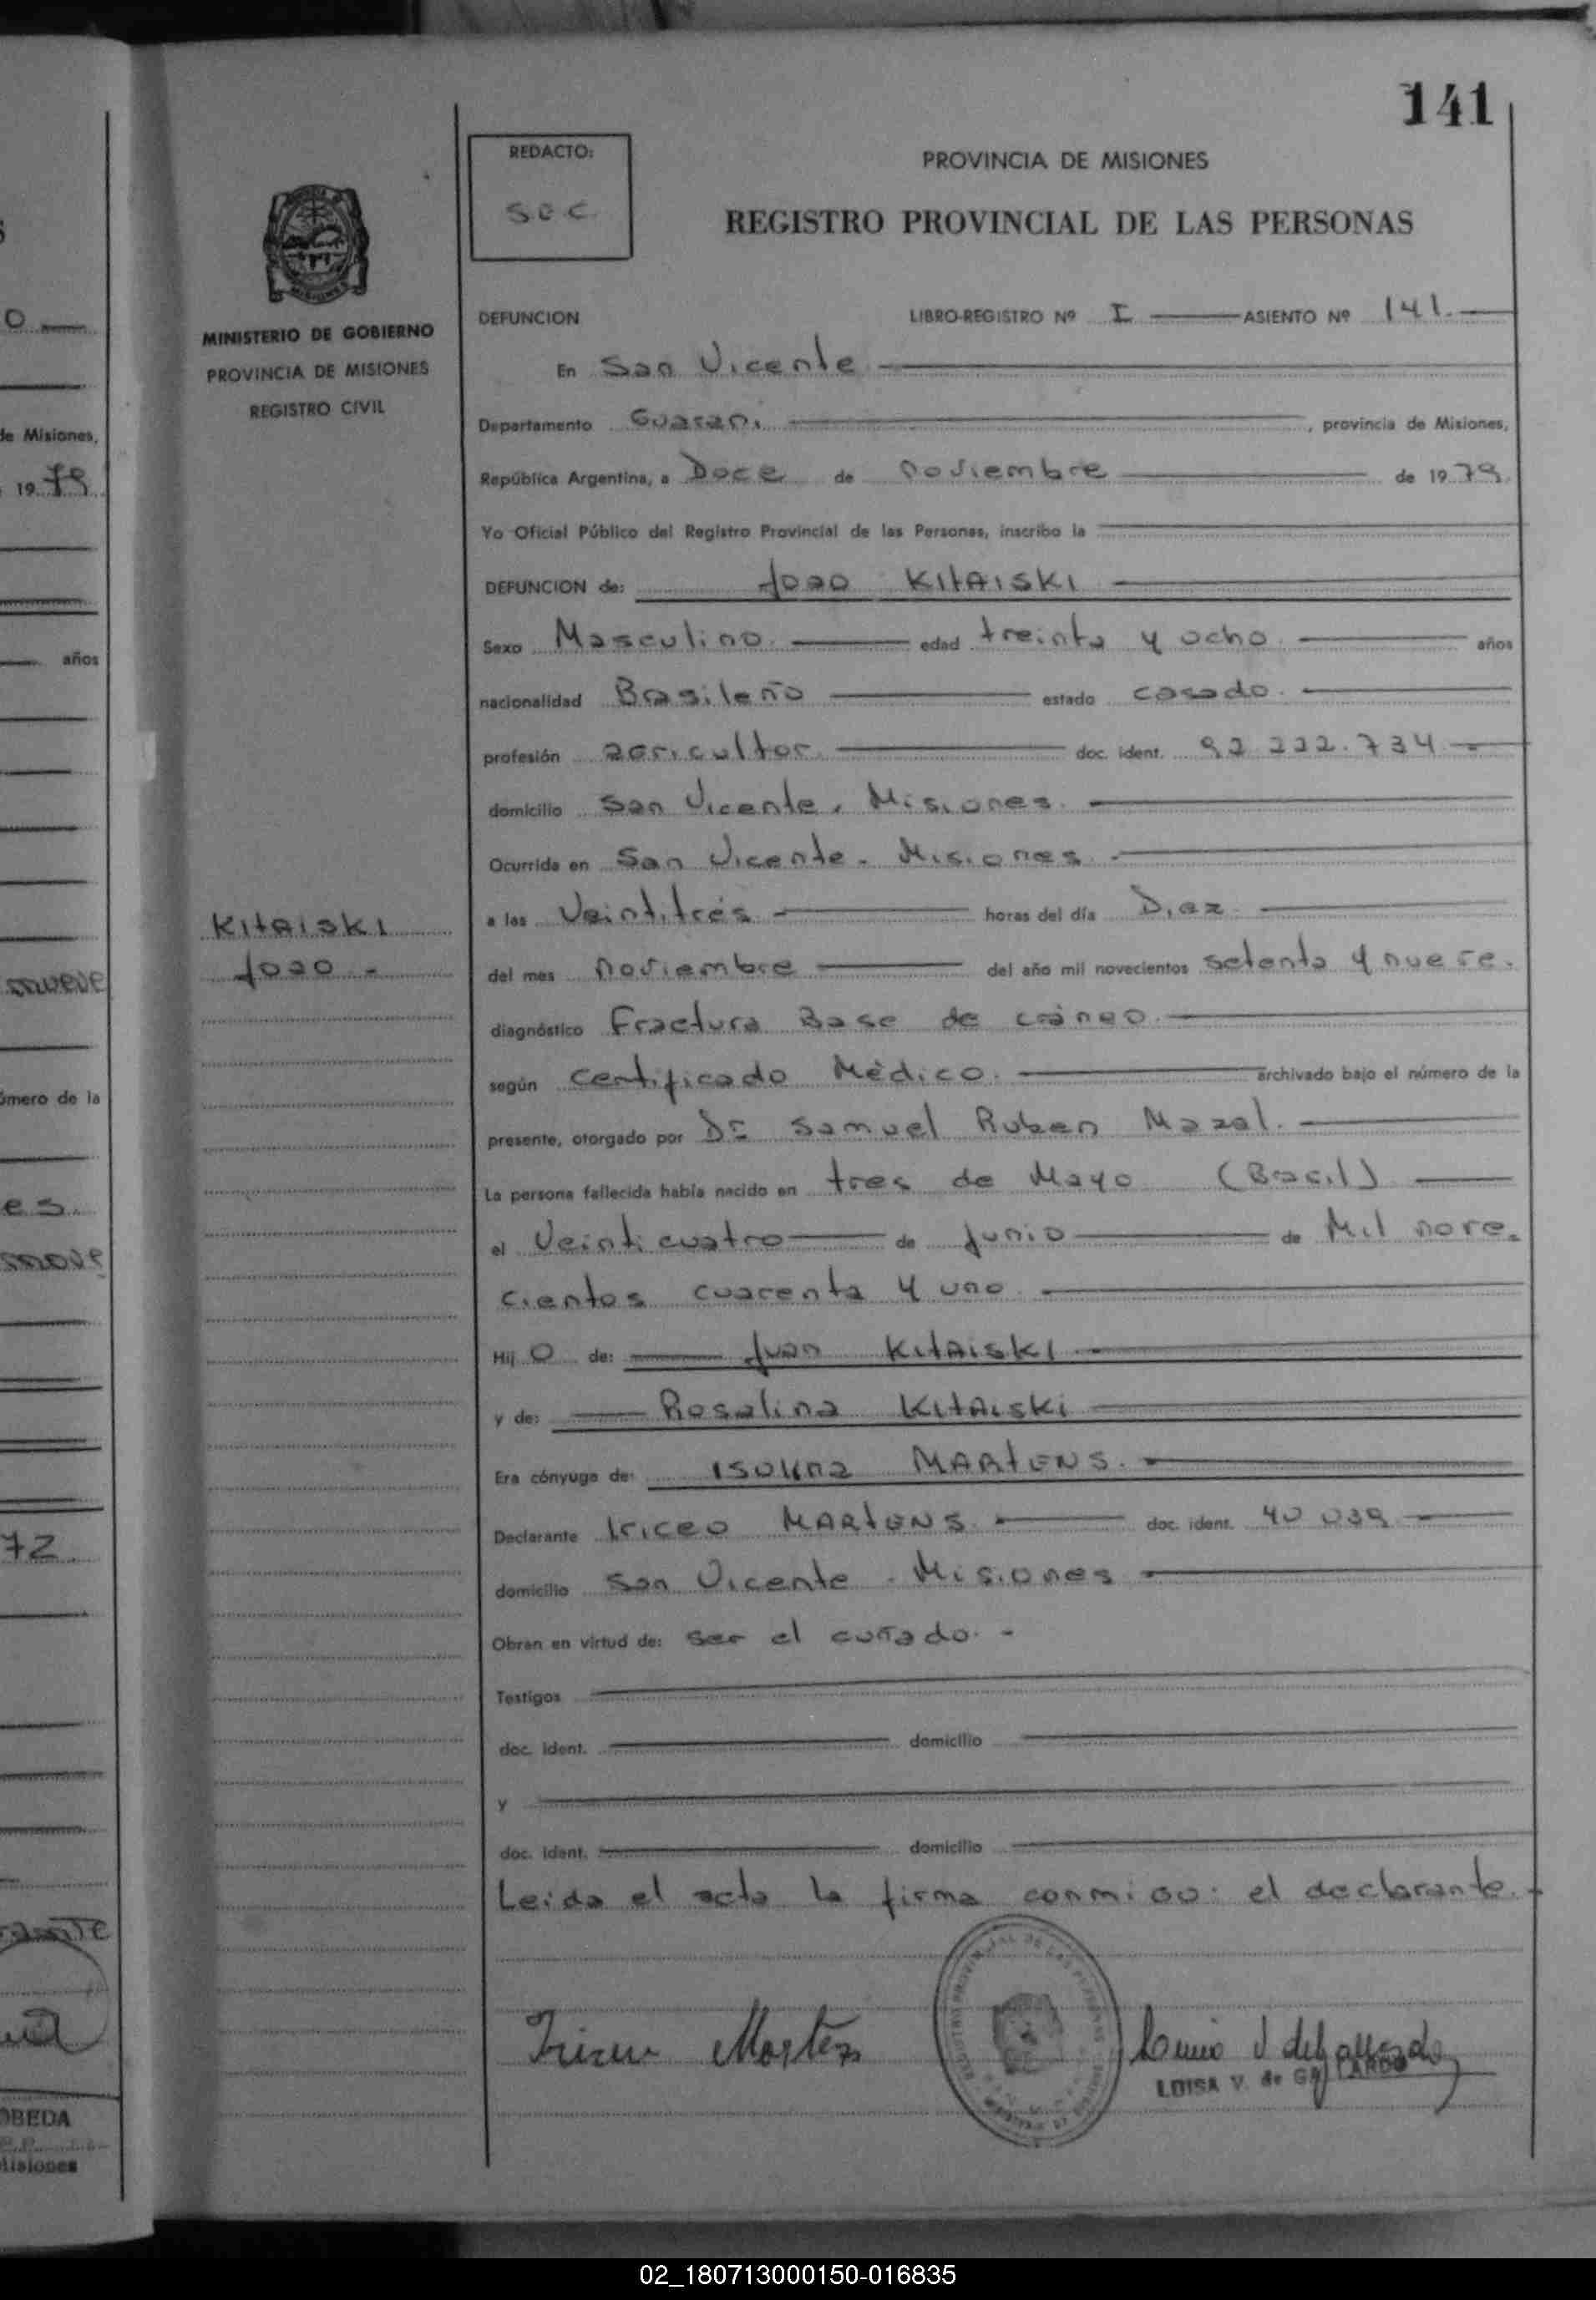 141
REDACTO:
PROVINCIA DE MISIONES
REGISTRO PROVINCIAL DE LAS PERSONAS
MINISTERIO DE GOBIERNO
PROVINCIA DE MISIONES
REGISTRO CIVIL
DEFUNCION LIBRO-REGISTRO Nº I ASIENTO Nº 141.
En San Vicente
Departamento Guarani, provincia de Misiones,
República Argentina, a Doce de noviembre de 1979.
Yo Oficial Público del Registro Provincial de las Personas, inscribo la
DEFUNCION de: Joao KItAISKI
Sexo Masculino. edad treinta y ocho. años
nacionalidad Brasileño estado casado.
profesión agricultor. doc. ident. 92 222.734
domicilio San Vicente. Misiones.
Ocurrida en San Vicente. Misiones.
a las Veintitrés horas del día Diez
del mes noviembre del año mil novecientos setenta y nueve.
diagnóstico Fractura Base de cráneo.
según Certificado Mèdico. archivado bajo el número de la
presente, otorgado por Dr Samuel Ruben Mazal.
La persona fallecida había nacido en tres de Mayo (Brasil)
el Veinticuatro de Junio de Mil nove
cientos cuarenta y uno.
Hij o de: Juan KItAISKI
y de: Rosalina KItAISKI
Era cónyuge de: MARtENS.
Declarante MARtENS doc. ident. 40 039
domicilio San Vicente. Misiones
Obran en virtud de: ser el cuñado.
Testigos
doc. ident. domicilio
y
doc. ident. domicilio
Leida el acta la firma conmigo: el declarante.
KItAISKI
Joao
LUISA V. de GALLARDO
de Misiones,
1979
años
número de la
72
Misiones
02_180713000150-016835